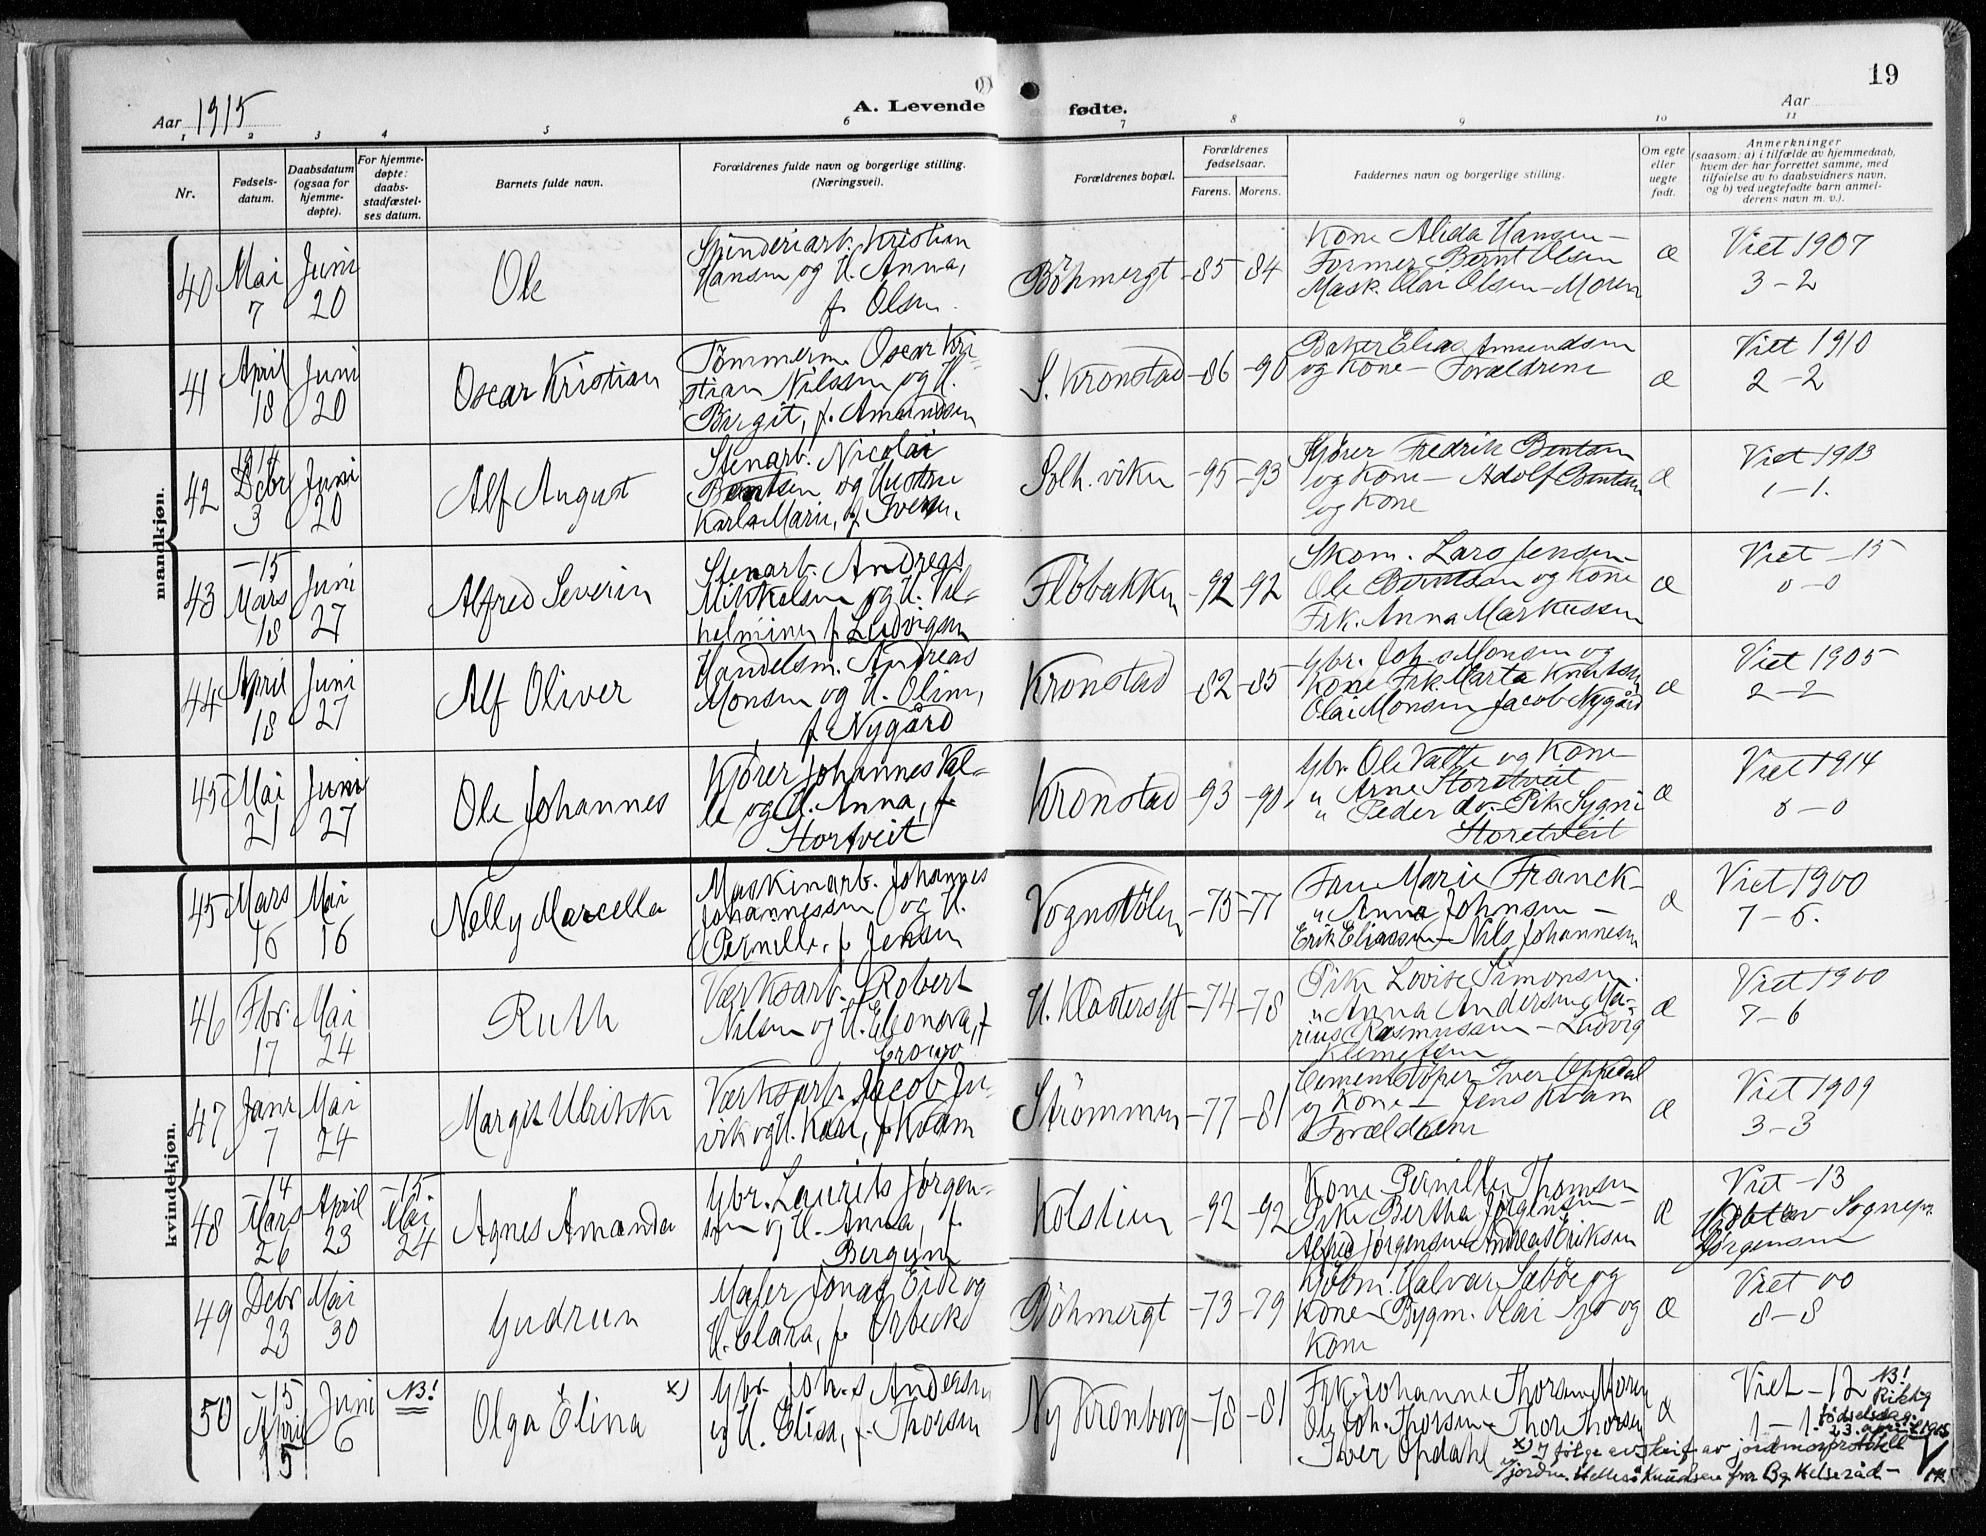 19
Aar 1915
A. Levende fødte.
Aar
1 2 3 4 5 6 7 8 9 10 11
Nr.
Fødsels-
datum.
Daabsdatum
(ogsaa for
hjemme-
døpte).
For hjemme-
døpte:
daabs-
stadfæstel-
ses datum.
Barnets fulde navn.
Forældrenes fulde navn og borgerlige stilling.
(Næringsvei).
Forældrenes bopæl.
Forældrenes
fødselsaar.
Farens. Morens.
Faddernes navn og borgerlige stilling.
Om egte
eller
uegte
født.
Anmerkninger
(saasom: a) i tilfælde av hjemmedaab,
hvem der har forrettet samme, med
tilføielse av to daabsvidners navn,
og b) ved uegtefødte barn anmel-
derens navn m. v.).
mandkjøn.
40 Mai 7 Juni 20 Ole
Spinderiarb. Kristian
Hansen og H. Anna,
f. Olsen.
Böhmergt -85 -84
Kone Alida Hansen -
Former Bernt Olsen
Mask. Olai Olsen - Moren
æ
Viet 1907
3 - 2
41 April 18 Juni 20 Oscar Kristian
Tømmerm. Oscar Kri-
stian Nilssen og H.
Birgit, f. Amundsen
S. Kronstad -86 -90
Baker Elias Amundsen
og Kone - Forældrene
æ
Viet 1910
2 - 2
42 1914 Debr 3 Juni 20 Alf August
Stenarb. Nicolai
Berntsen og Hustru
Karla Marie, f. Iversen.
Solh.viken -95 -93
Kjører Fredrik Bentsen
og Kone - Adolf Bentsen
og Kone
æ
Viet 1913
1 - 1.
43 -15 Mars 18 Juni 27 Alfred Severin
Stenarb. Andreas
Mikkelsen og H. Vil-
helmine f Ludvigsen
Fløbakken -92 -92
Skom. Lars Jensen -
Ole Berntsen og Kone
Frk. Anna Markussen
æ
Viet -15
0 - 0
44 April 18 Juni 27 Alf Oliver
Handelsm. Andreas
Monsen og H. Oline,
f Nygård
Kronstad -82 -85
Gbr. Joh.s Monsen og
Kone Frk. Marta Knutsen
Olai Monsen Jacob Nygård
æ
Viet 1905
2 - 2
45 Mai 21 Juni 27 Ole Johannes
Kjører Johannes Val-
le og H. Anna, f.
Stortveit
Kronstad -93 -90
Gbr. Ole Valle og Kone
" Arne Storetveit -
" Peder do - Pik Sygni
Storetveit
æ
Viet 1914
0 - 0
kvindekjøn.
45 Mars 16 Mai 16 Nelly Marcella
Maskinarb. Johannes
Johannessen og H.
Pernille, f Jensen
Vognstølen -75 -77
Fru Marie Franck -
" Anna Johnsen -
Erik Eliassen - Nils Johannesen
æ
Viet 1900
7 - 6.
46 Fbr. 17 Mai 24 Ruth
Værksarb. Robert
Nilsen og H. Eleonora, f
H. Klostersgt -74 -78
Pike Lovise Simonsen.
" Anna Andersen, Ma-
rius Rasmussen - Ludvig
Klemetsen
æ
Viet 1900
7 - 6
47 Janr 7 Mai 24 Margit Ulrikke
Værksarb. Jacob Ju-
vik og H. Kari, f Kvam
Strømmen -77 -81
Cementstøper Iver Oppedal
og Kone - Jens Kvam
Forældrene
æ
Viet 1909
3 - 3
48 -14 Mars 26 April 23 -15 Mai 24 Agnes Amanda
Gbr. Laurits Jørgen-
sen og H. Anna, f.
Bergum
Kolstien -92 -92
Kone Pernille Thomsen
Pike Bertha Jørgensen -
Alfred Jørgensen Andreas Eriksen
æ
Viet -13
Døbt av Sognepr.
Jørgensen
49 Debr 23 Mai 30 Gudrun
Maler Jonas Eide og
H. Clara, f. Orbeck
Böhmergt -73 -79
Kjøbm. Halvar Sæbøe og
Kone Bygm. Olai og
Kone
æ
Viet 00
8 - 8
50 -15 April 15 Juni 6 NB! Olga Elina x)
Gbr. Joh.s Andersen
og H. Elisa, f. Thorsen
Ny Kronborg -78 -81
Frk. Johanne Thorsen, Moren
Ole Joh. Thorsen - Thor Thorsen
Iver Opdahl
æ
Viet - 12
1 - 1.
NB!
Riktig
fødselsdag:
23. april 1915
x) I følge avskrift av jordmorprotokoll
v/ jordm. Knudsen fra Bg. Helseråd -